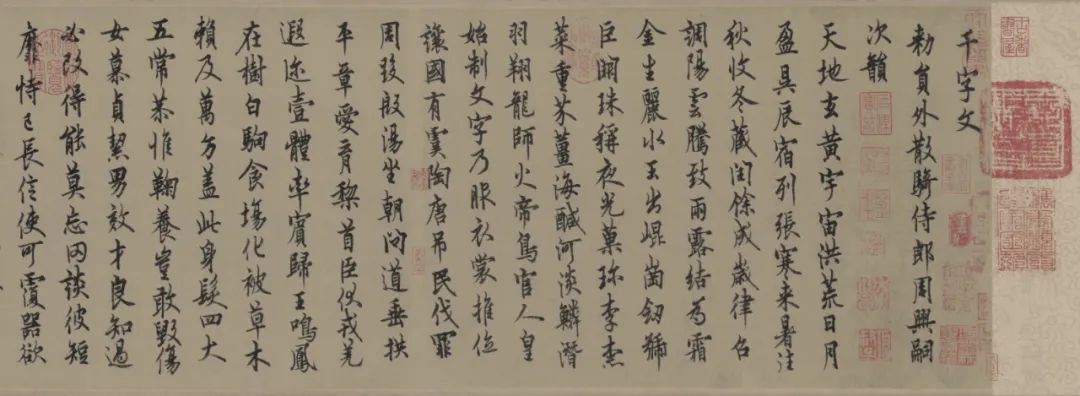 千字文
勅員外散騎侍郎周興嗣
次韻
天地玄黃宇宙洪荒日月
盈昃辰宿列張寒来暑往
秋收冬藏閏餘成歲律召
調陽雲騰致雨露結為霜
金生麗水玉出崐崗劒號
巨闕珠稱夜光菓珎李柰
菜重芥薑海鹹河淡鱗潛
羽翔龍師火帝鳥官人皇
始制文字乃服衣裳推位
讓國有虞陶唐吊民伐罪
周發殷湯坐朝問道垂拱
平章愛育黎首臣伏戎羌
遐迩壹體率賓歸王鳴鳳
在樹白駒食場化被草木
賴及萬方盖此身髮四大
五常恭惟鞠養豈敢毀傷
女慕貞絜男效才良知過
必改得能莫忘罔談彼短
靡恃己長信使可覆器欲